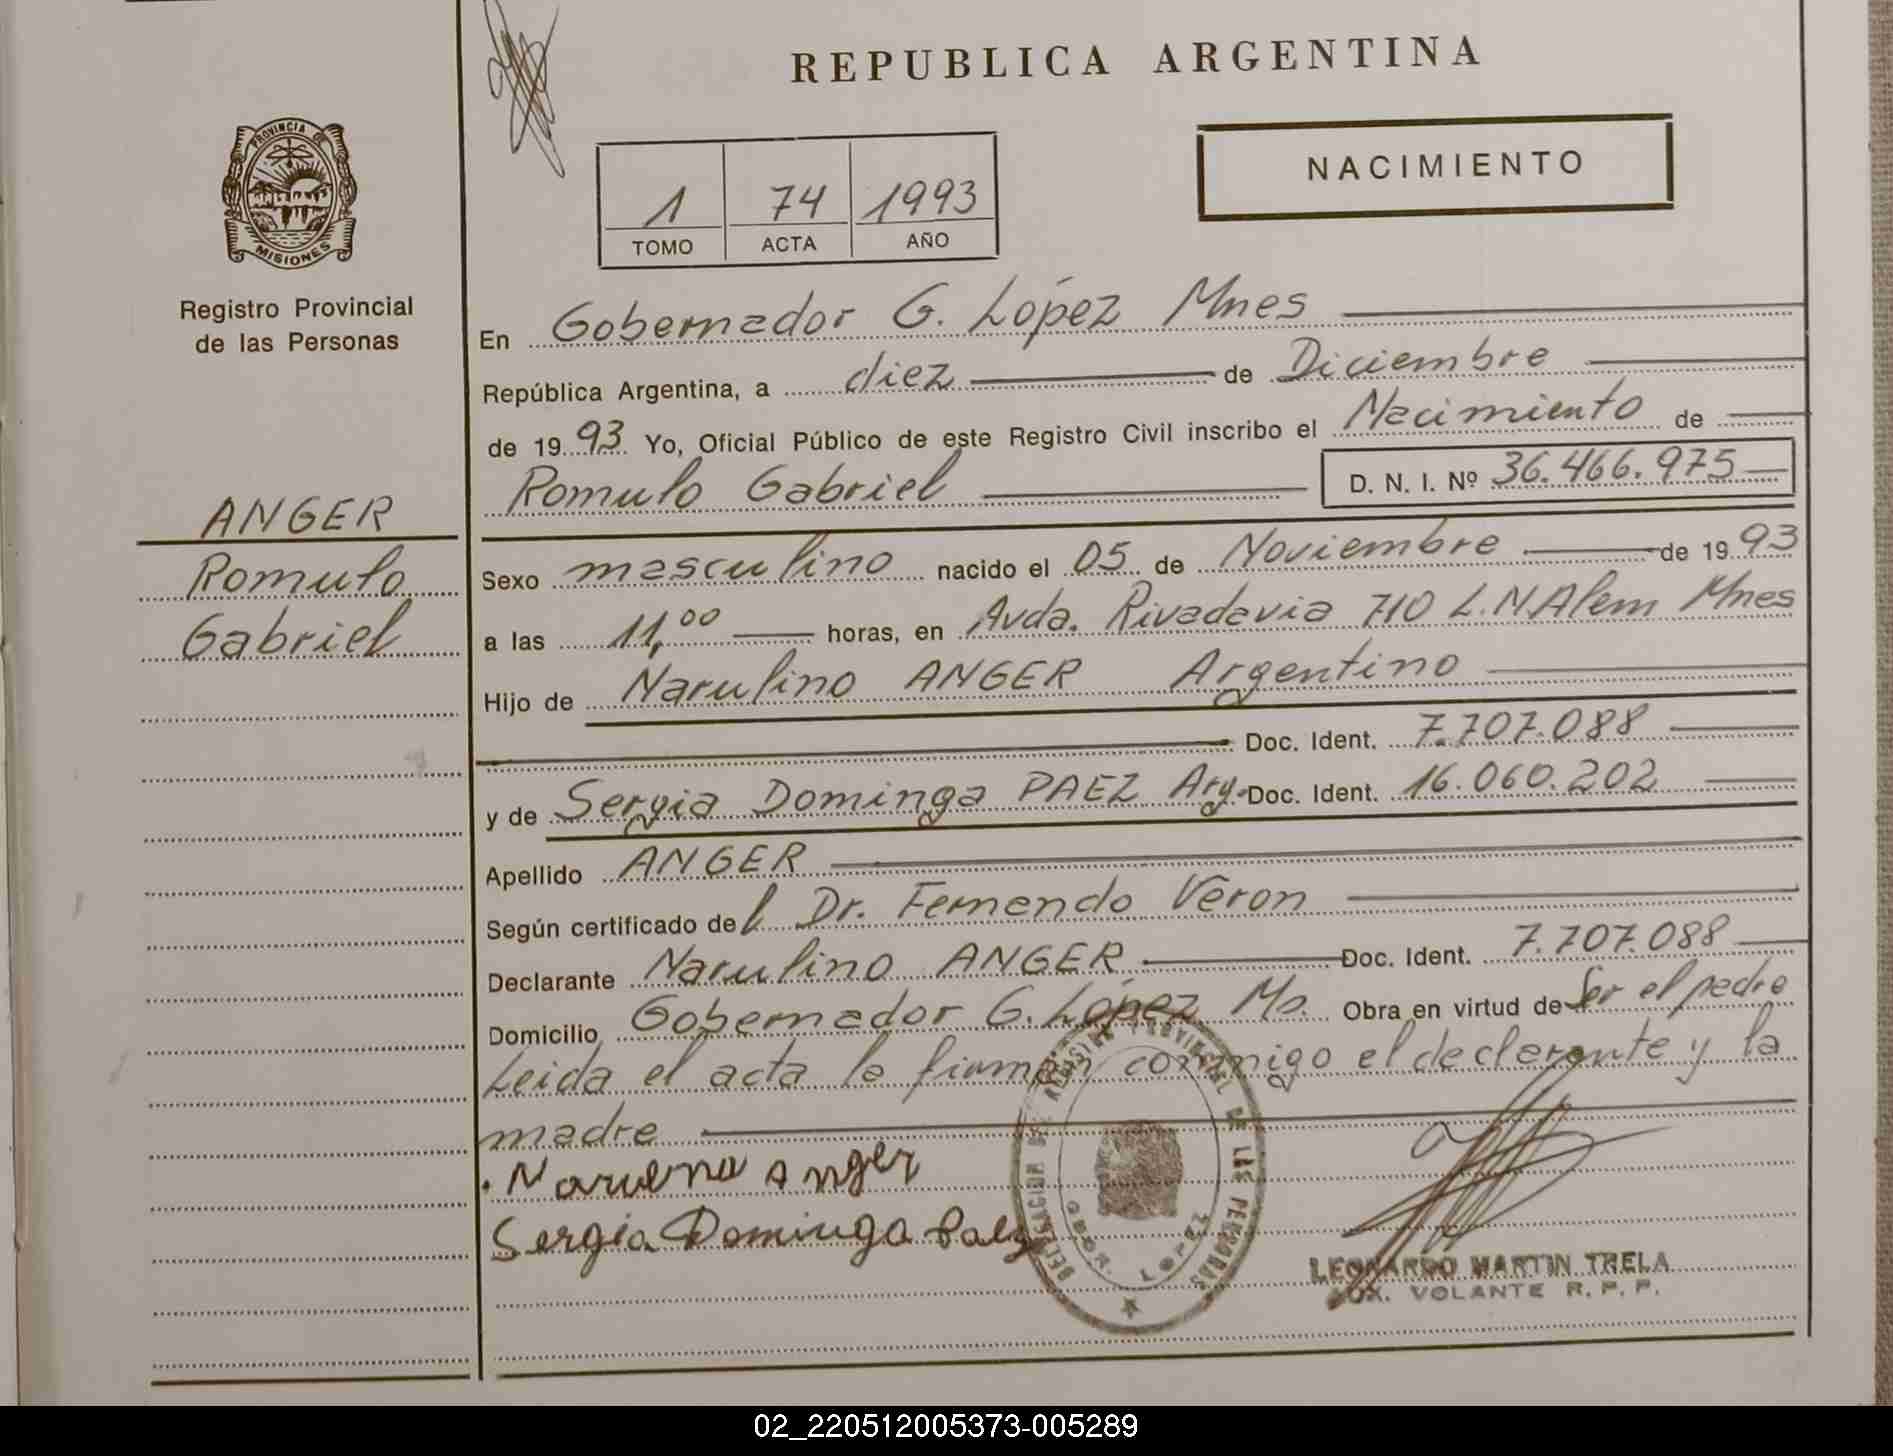 REPUBLICA ARGENTINA
NACIMIENTO
1 74 1993
TOMO ACTA AÑO
PROVINCIA DE
MISIONES
Registro Provincial
de las Personas
ANGER
Romulo
Gabriel
En Gobernador G. López Mnes
República Argentina, a diez de Diciembre
de 1993 Yo, Oficial Público de este Registro Civil inscribo el Nacimiento de
Romulo Gabriel D. N. I. Nº 36.466.975
Sexo masculino nacido el 05 de Noviembre de 1993
a las 11,00 horas, en Avda. Rivadavia 710 L.N Alem Mnes
Hijo de Narulino ANGER Argentino
Doc. Ident. 7.707.088
y de Sergia Dominga PAEZ Arg. Doc. Ident. 16.060.202
Apellido ANGER
Según certificado del Dr. Fernando Veron
Declarante Narulino ANGER Doc. Ident. 7.707.088
Domicilio Gobernador G. López Ms. Obra en virtud de Ser el padre
Leida el acta la firman conmigo el declarante y la
madre
Anger
Sergia Dominga Paez
DELEGACION DEL REGISTRO PROVINCIAL DE LAS PERSONAS
GDOR. LOPEZ
LEONARDO MARTIN TRELA
AUX. VOLANTE R. P. P.
02_220512005373-005289